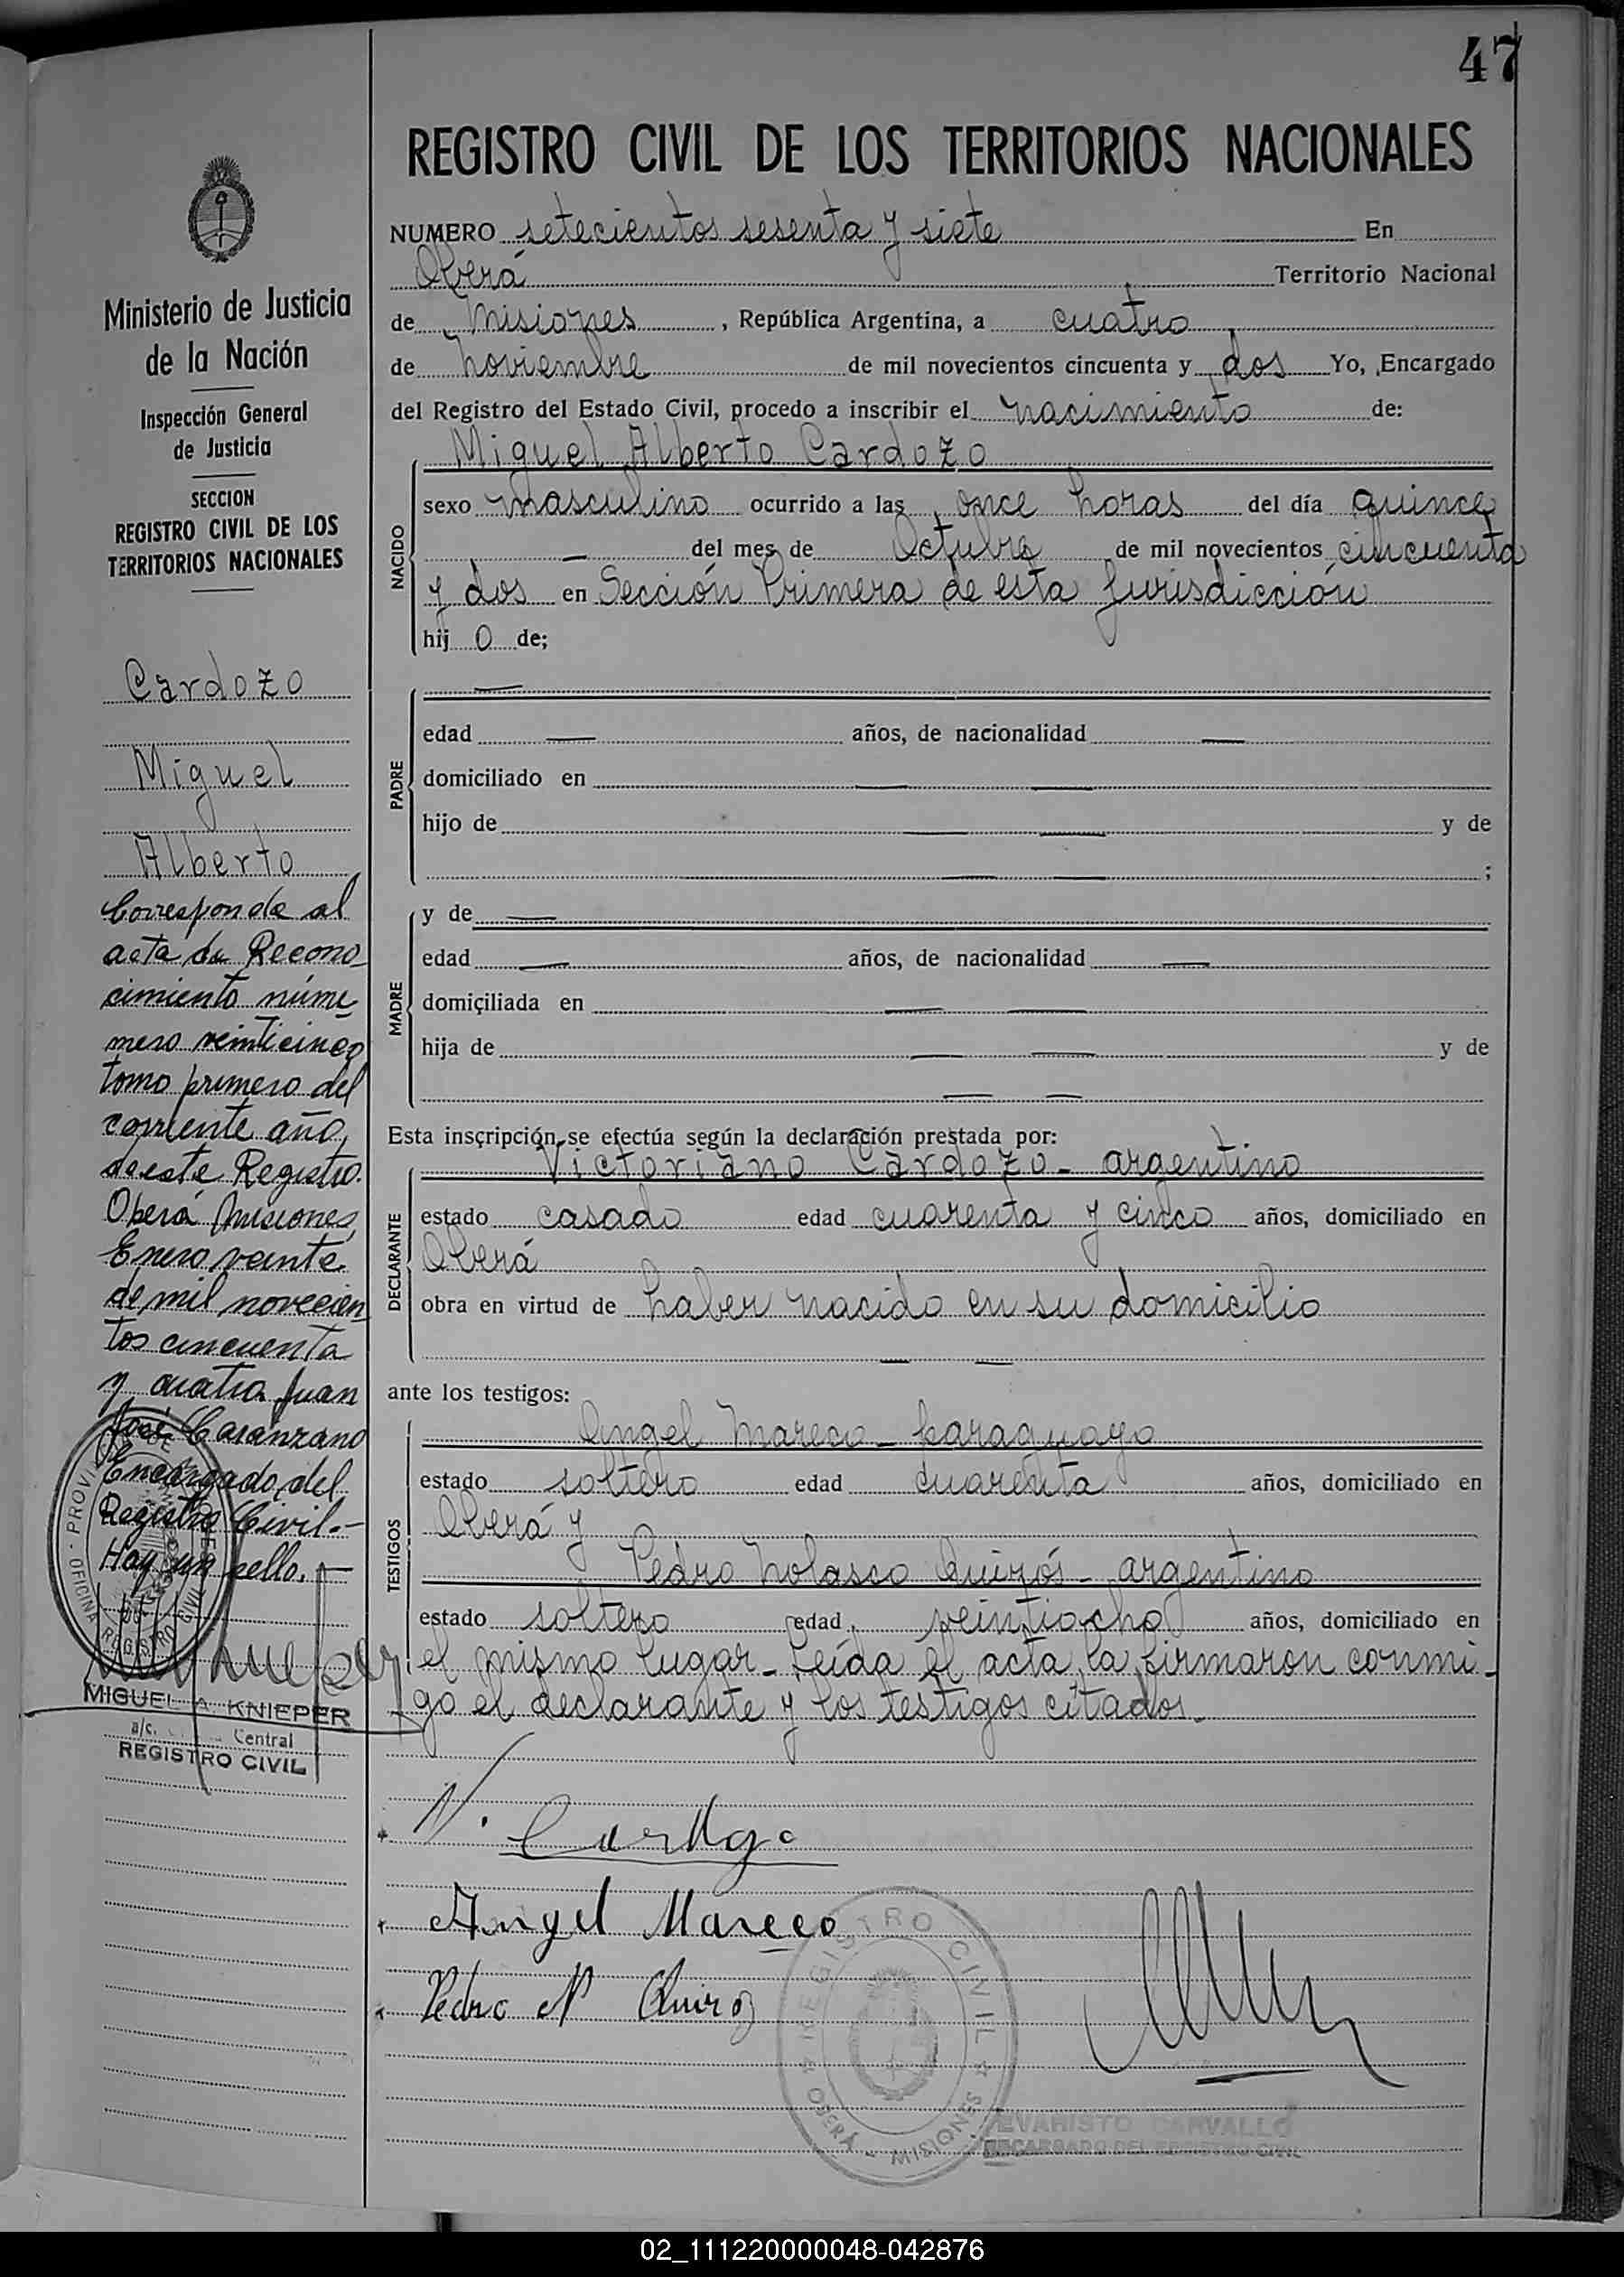 47
REGISTRO CIVIL DE LOS TERRITORIOS NACIONALES
NUMERO setecientos sesenta y siete En
Oberá Territorio Nacional
de Misiones, República Argentina, a cuatro
de noviembre de mil novecientos cincuenta y dos Yo, Encargado
del Registro del Estado Civil, procedo a inscribir el nacimiento de:
Miguel Alberto Cardozo
NACIDO
sexo masculino ocurrido a las once horas del día quince
— del mes de Octubre de mil novecientos cincuenta
y dos en Sección Primera de esta Jurisdicción
hij o de;
—
PADRE
edad — años, de nacionalidad —
domiciliado en — —
hijo de — — y de
— — ;
MADRE
y de —
edad — años, de nacionalidad —
domiciliada en — —
hija de — — y de
— —
Esta inscripción se efectúa según la declaración prestada por:
Victoriano Cardozo - argentino
DECLARANTE
estado casado edad cuarenta y cinco años, domiciliado en
Oberá
obra en virtud de haber nacido en su domicilio
— —
ante los testigos:
Angel Mareco - paraguayo
TESTIGOS
estado soltero edad cuarenta años, domiciliado en
Oberá y
Pedro Nolasco Quirós - argentino
estado soltero edad veintiocho años, domiciliado en
el mismo lugar - Leída el acta la firmaron conmi-
go el declarante y los testigos citados.
Angel Mareco
Pedro N Quiroz
REGISTRO CIVIL
OBERÁ - MISIONES
EVARISTO CARVALLO
ENCARGADO DEL REGISTRO CIVIL
Ministerio de Justicia
de la Nación
Inspección General
de Justicia
SECCION
REGISTRO CIVIL DE LOS
TERRITORIOS NACIONALES
Cardozo
Miguel
Alberto
Corresponde al
acta de Recono-
cimiento núme
mero veinticinco
tomo primero del
corriente año,
de este Registro.
Oberá Misiones,
Enero veinte
de mil novecien
tos cincuenta
y cuatro. Juan
José Caranzano
Encargado del
Registro Civil.-
Hay un sello.-
MIGUEL A. KNIEPER
a/c. Central
REGISTRO CIVIL
02_111220000048-042876